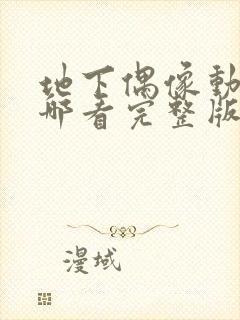 地下偶像動
哪看完整版
漫域